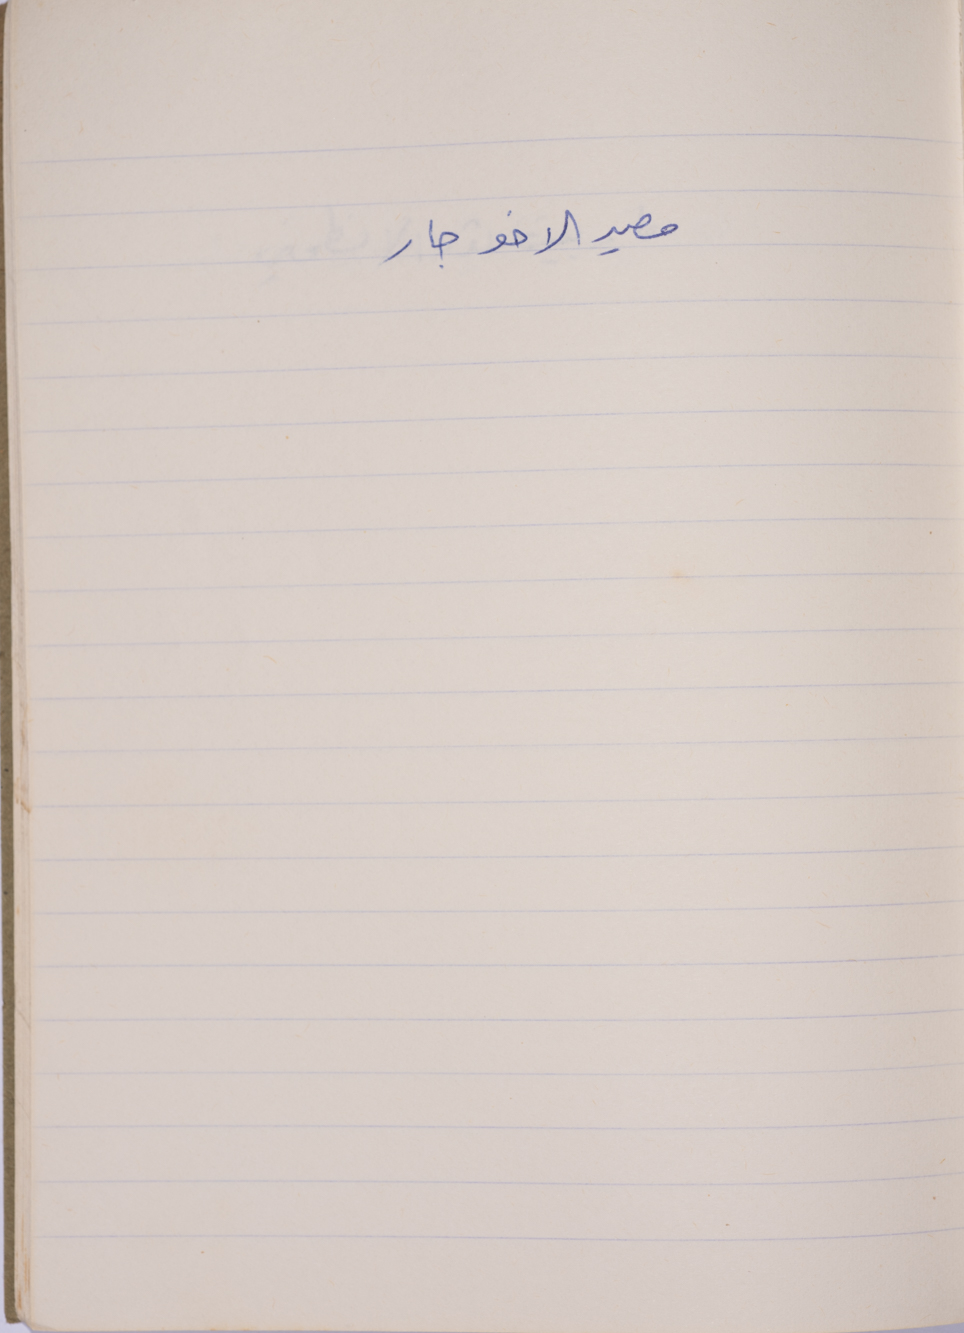 مصير الاخو جار